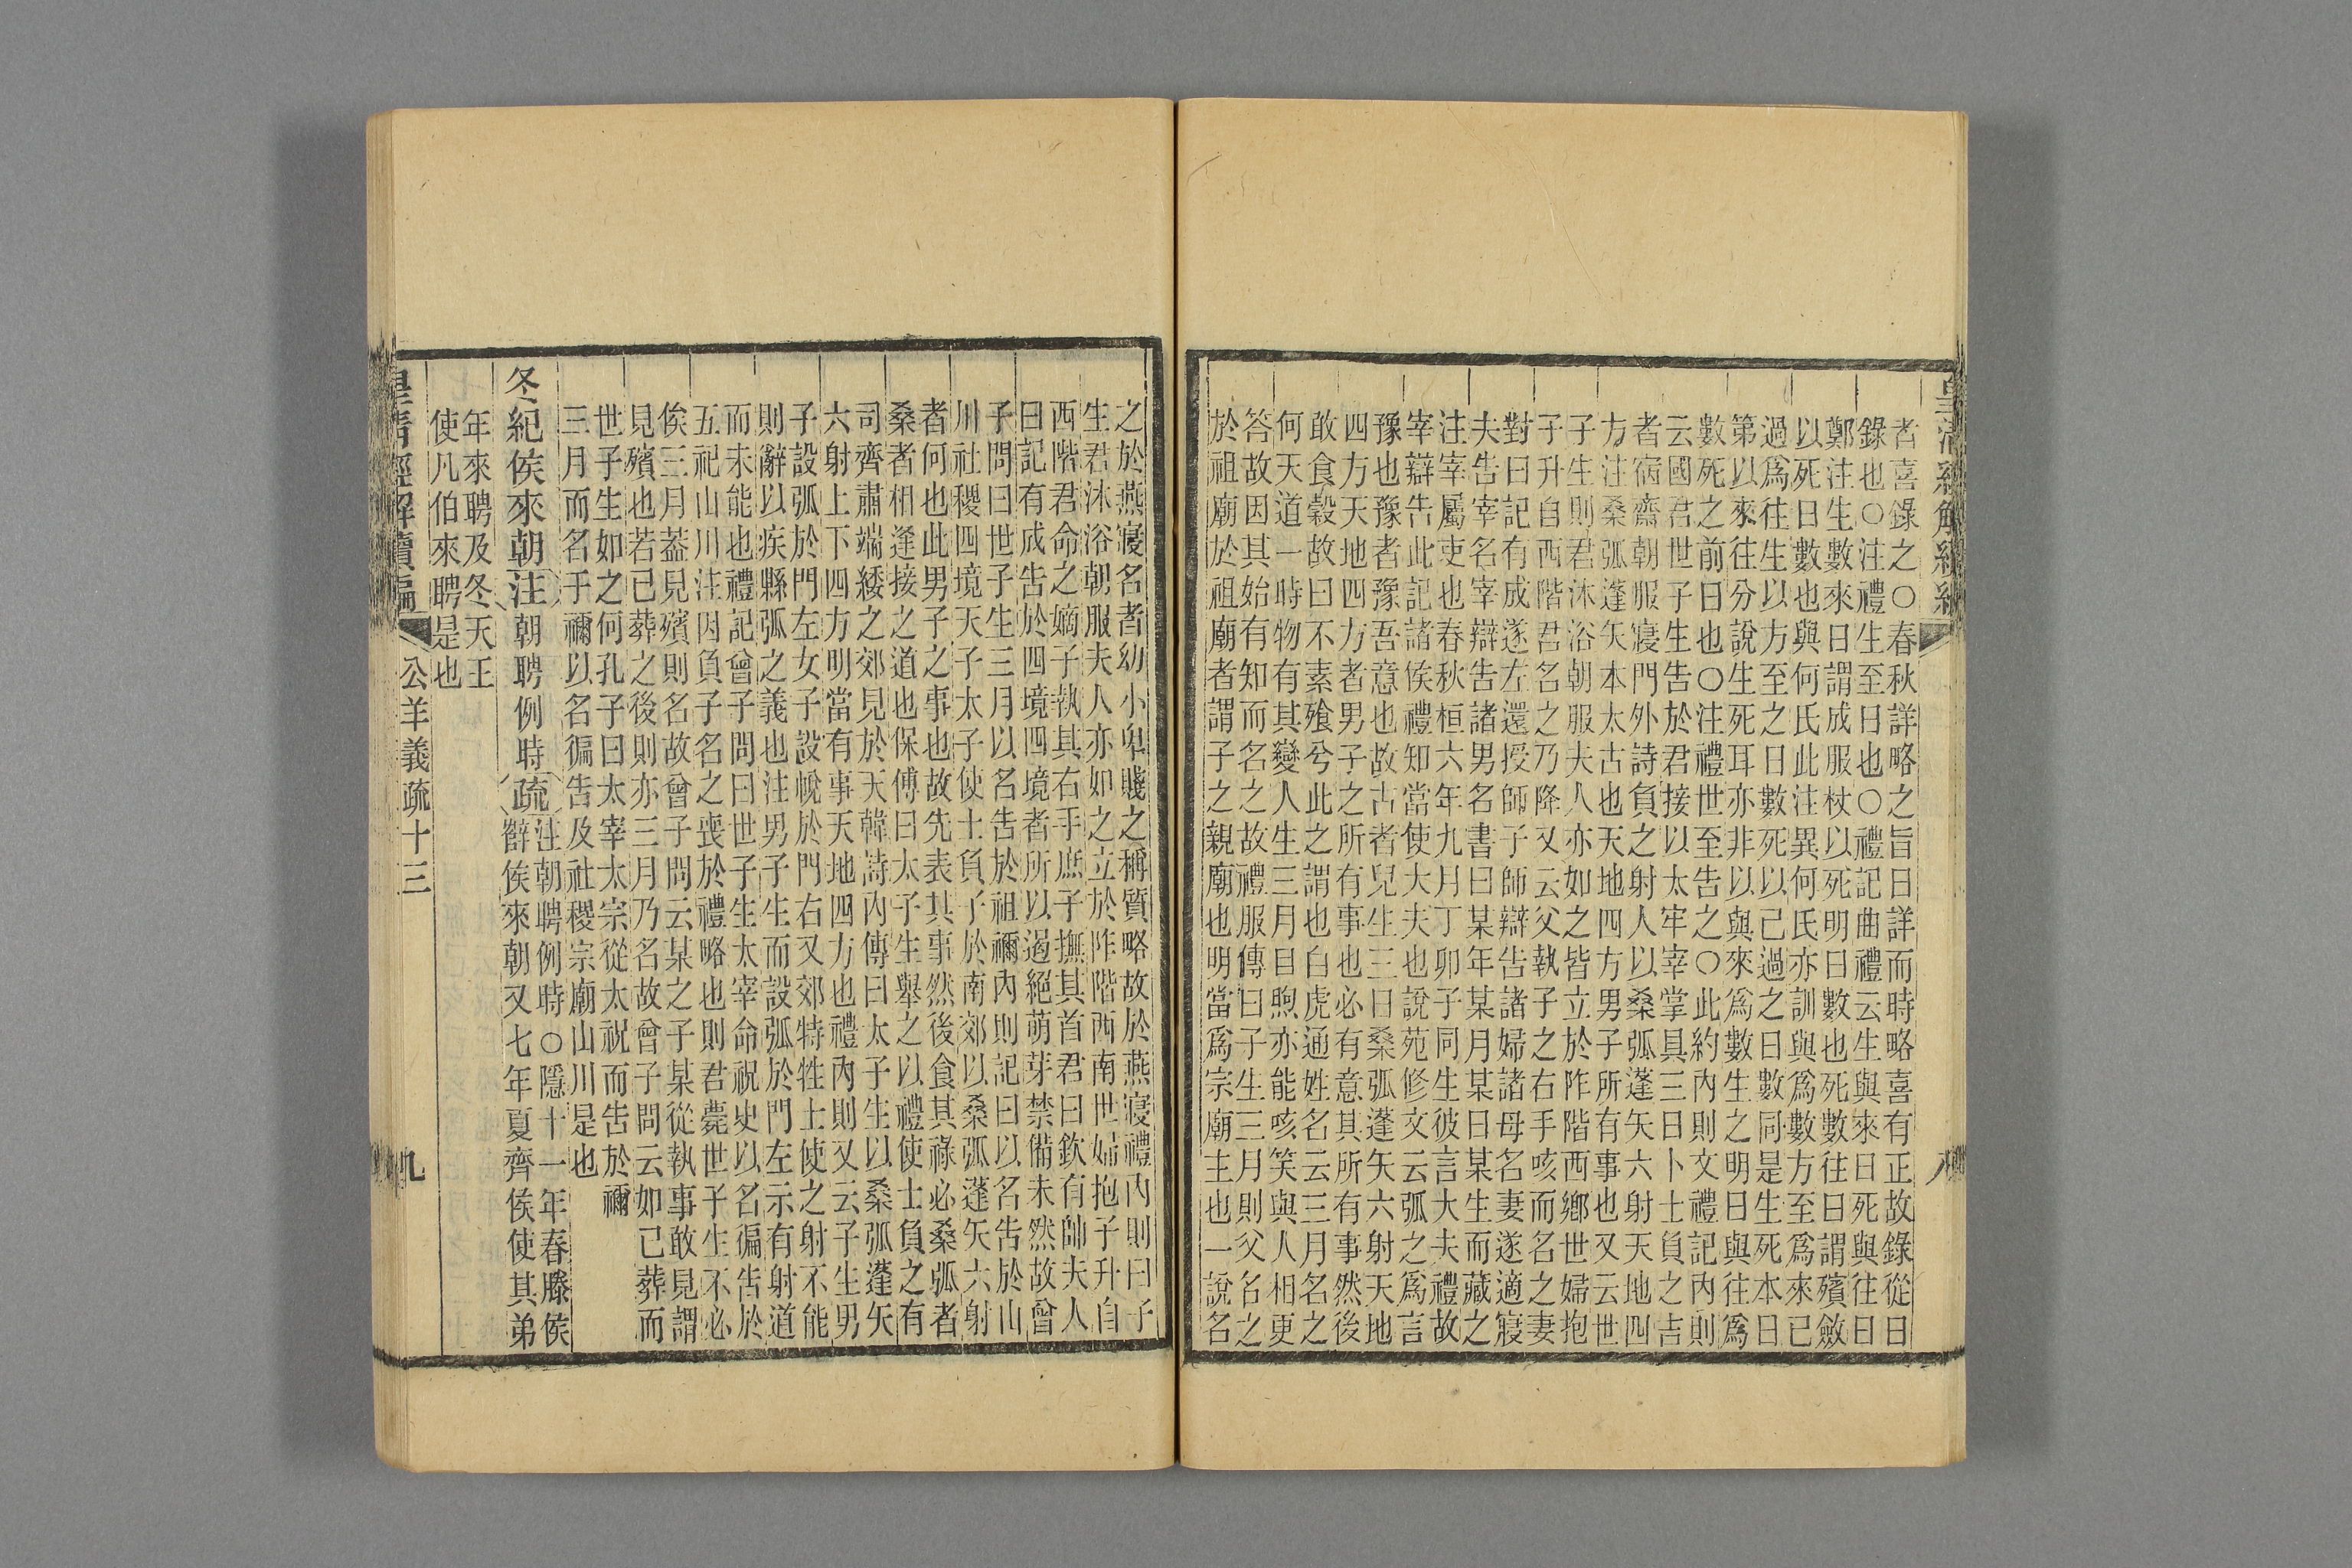 皇清經解續編
者喜錄之○春秋詳略之旨日詳而時略喜有正故錄從日
錄也○注禮生至日也○禮記曲禮云生與來日死與往日
鄭注生數來日謂成服杖以死明日數也死數往日謂殯斂
以死日數也與何氏此注異何氏亦訓與爲數方至爲來已
過爲往生以方至之日數死以己過之日數同是生死本日
第以來往分說生死耳亦非以與來爲數生之明日與往爲
數死之前日也○注禮世至告之○此約內則文禮記內則
云國君世子生告於君接以太牢宰掌具三日卜士負之吉
者宿齋朝服寢門外詩負之射人以桑弧蓬矢六射天地四
方注桑弧蓬矢本太古也天地四方男子所有事也又云世
子生則君沐浴朝服夫人亦如之皆立於阼階西鄉世婦抱
子升自西階君名之乃降又云父執子之右手咳而名之妻
對曰記有成遂左還授師子師辯告諸婦諸母名妻遂適寢
夫告宰名宰辯告諸男名書曰某年某月某日某生而藏之
注宰屬吏也春秋桓六年九月丁卯子同生彼言大夫禮故
宰辯告此記諸侯禮知當使大夫也說苑修文云弧之爲言
豫也豫者豫吾意也故古者兒生三日桑弧蓬矢六射天地
四方天地四方者男子之所有事也必有意其所有事然後
敢食穀故曰不素飱兮此之謂也白虎通姓名云三月名之
何天道一時物有其變人生三月目煦亦能咳笑與人相更
答故因其始有知而名之故禮服傳曰子生三月則父名之
於祖廟於祖廟者謂子之親廟也明當爲宗廟主也一說名
之於燕寢名者幼小卑賤之稱質略故於燕寢禮內則曰子
生君沐浴朝服夫人亦如之立於阼階西南世婦抱子升自
西階君命之嫡子執其右手庶子撫其首君曰欽有帥夫人
曰記有成告於四境四境者所以遏絕萌芽禁備未然故曾
子問曰世子生三月以名告於祖禰內則記曰以名告於山
川社稷四境天子太子使士負子於南郊以桑弧蓬矢六射
者何也此男子之事也故先表其事然後食其祿必桑弧者
桑者相逢接之道也保傅曰太子生舉之以禮使士負之有
司齊肅端緌之郊見於天韓詩內傳曰太子生以桑弧蓬矢
六射上下四方明當有事天地四方也禮內則又云子生男
子設弧於門左女子設帨於門右又郊特牲士使之射不能
則辭以疾縣弧之義也注男子生而設弧於門左示有射道
而未能也禮記曾子問曰世子生太宰命祝史以名徧告於
五祀山川注因負子名之喪於禮略也則君薨世子生不必
俟三月葢見殯則名故曾子問云某之子某從執事敢見謂
見殯也若已葬之後則亦三月乃名故曾子問云如已葬而
世子生如之何孔子曰太宰太宗從太祝而告於禰
三月而名于禰以名徧告及社稷宗廟山川是也
冬紀侯來朝注朝聘例時疏注朝聘例時○隱十一年春滕侯
薛侯來朝又七年夏齊侯使其弟
年來聘及冬天王
使凡伯來聘是也
公羊義疏十三
九